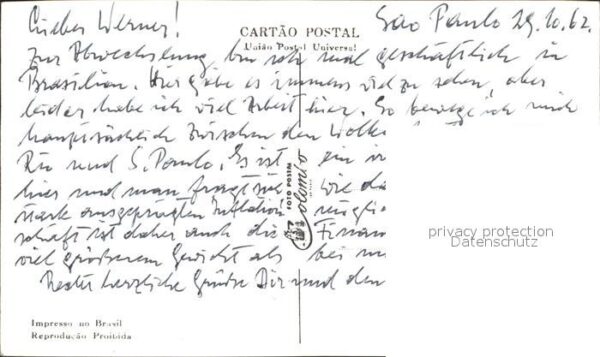 São Paulo 29.10.62.
Lieber Werner!
CARTÃO POSTAL
União Postal Universal
Zur Abwechslung bin ich mal geschäftlich in
Brasilien. Hier gäbe es immens viel zu sehen, aber
leider habe ich viel Arbeit hier. So bewege ich mich
hauptsächlich zwischen den Wolke
Rio und S. Paulo. Es ist ein
hier und man fragt sich wie da
stark ausgeprägten Inflation
schaft ist daher auch die Finan
viel grösserem Gewicht als bei
Recht herzliche Grüsse Dir und den
FOTO POSTAL
Colombo
privacy protection
Datenschutz
Impresso no Brasil
Reprodução Proibida